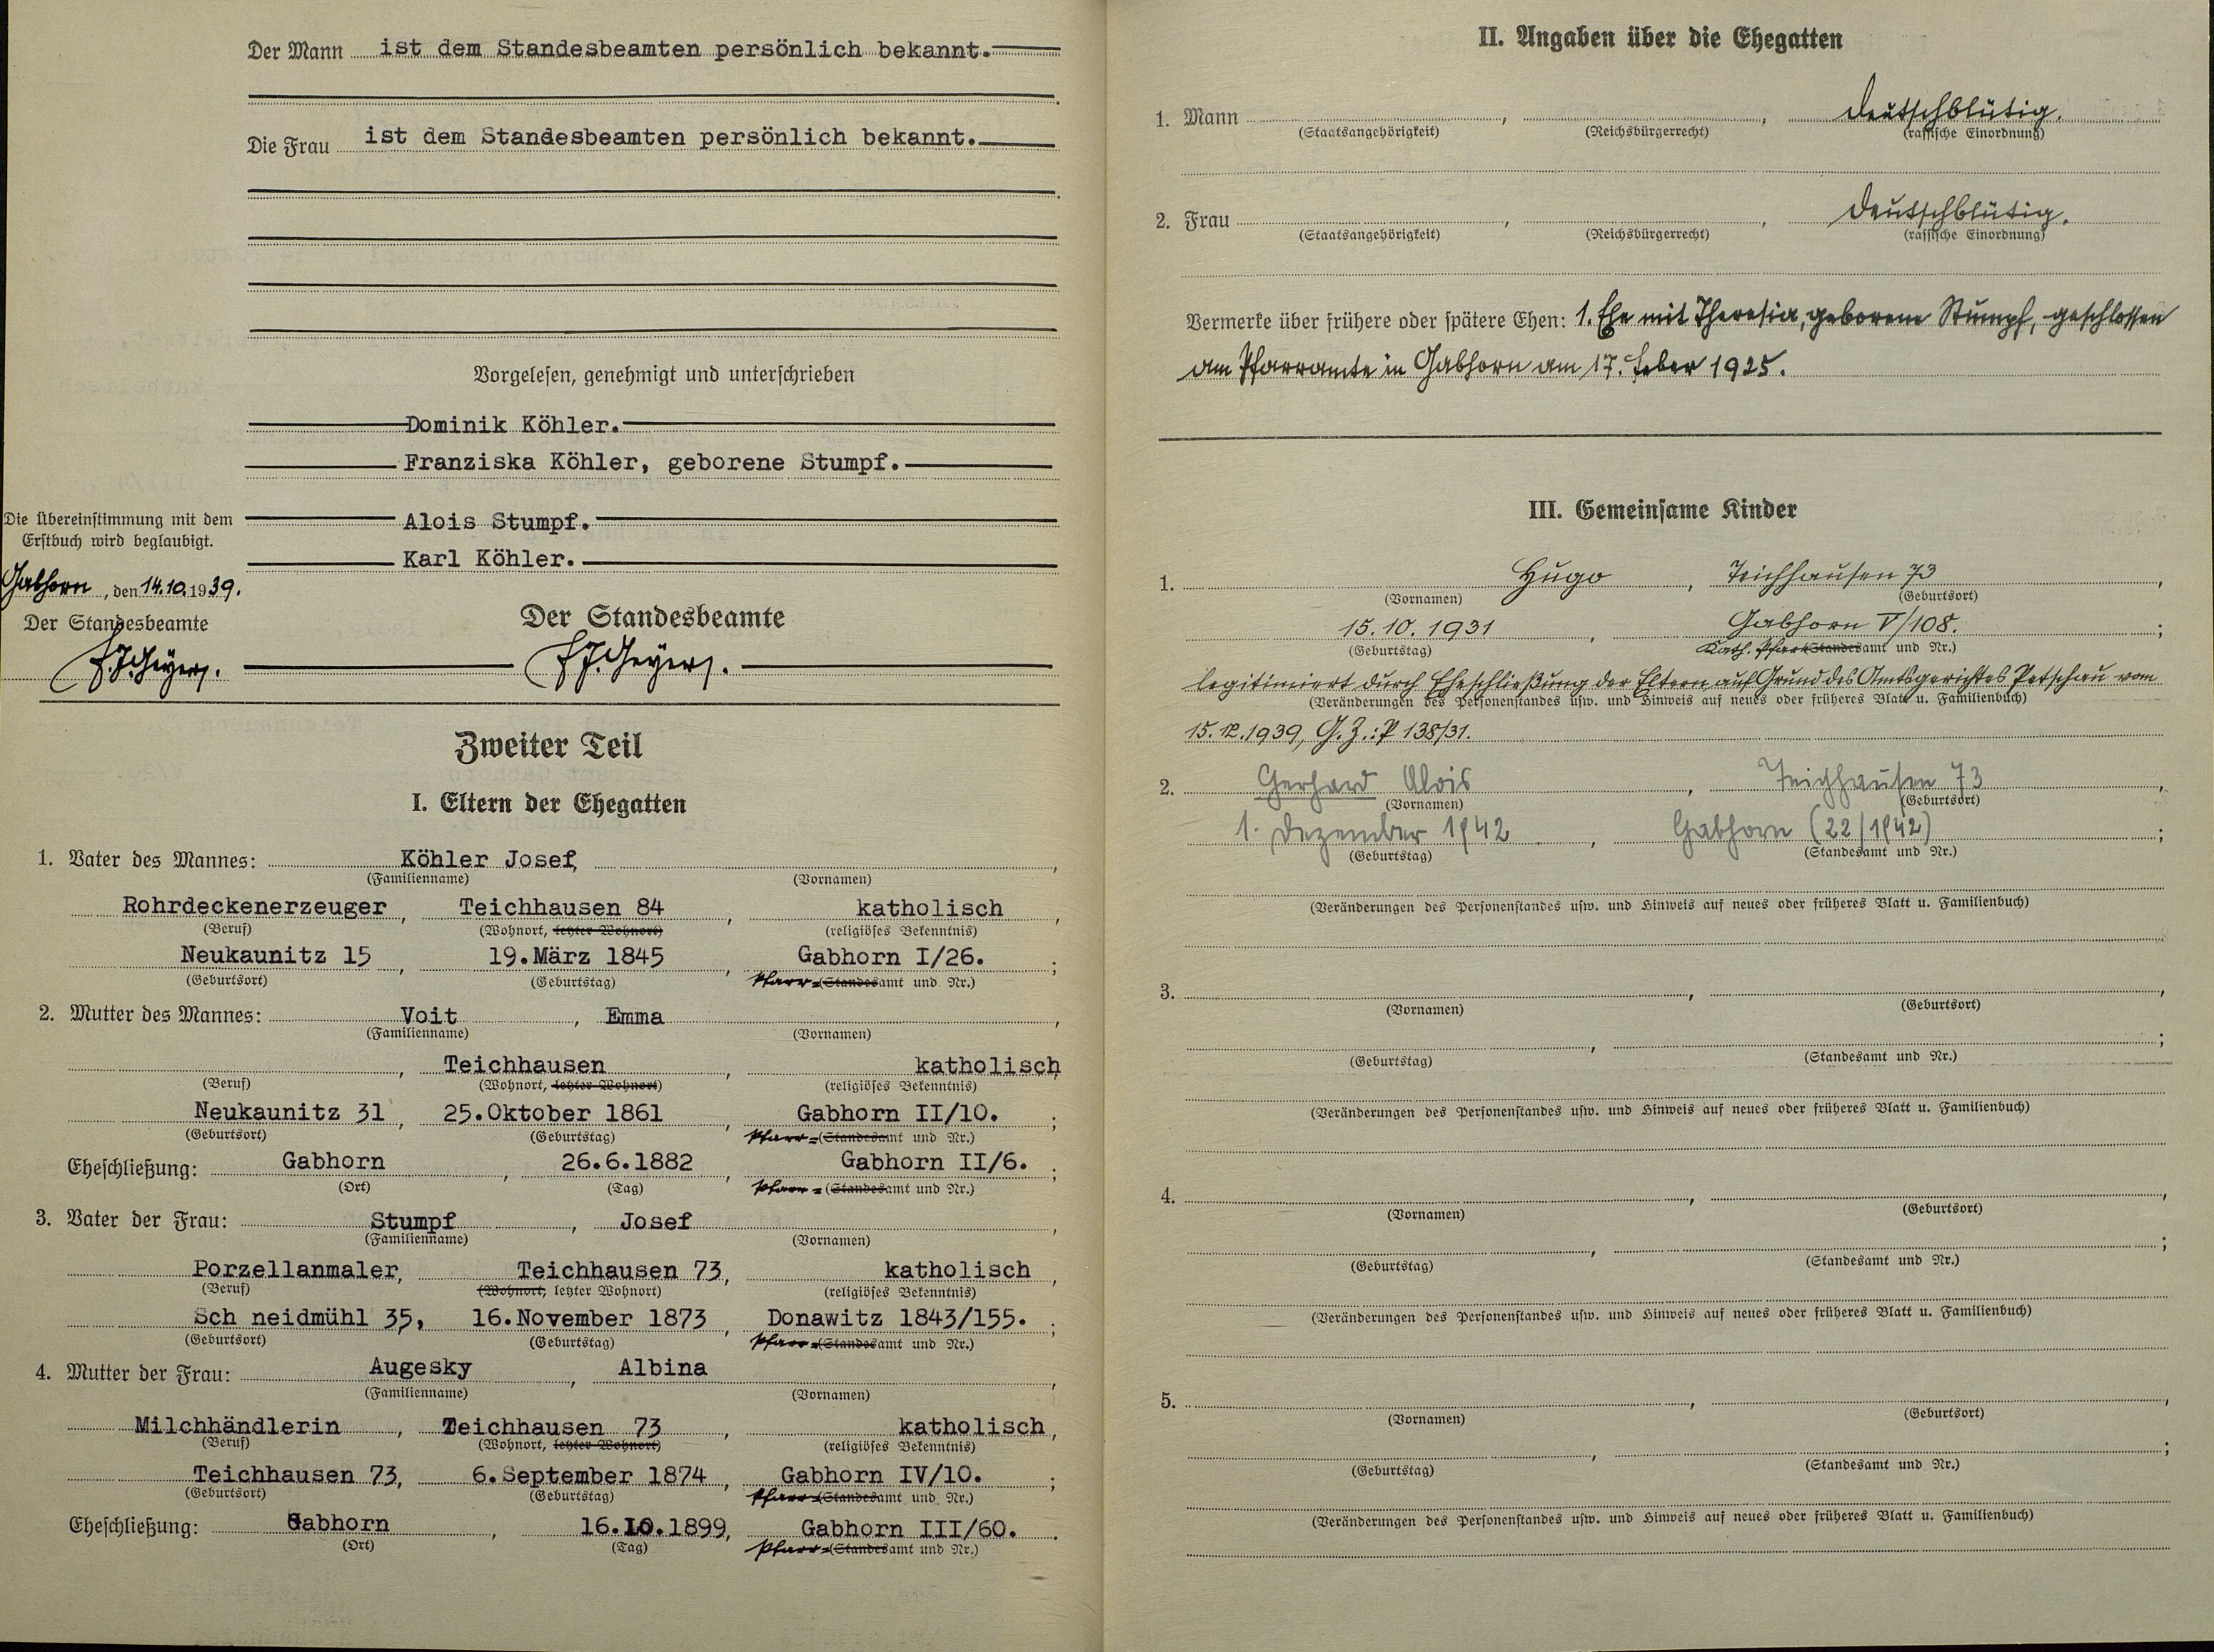 Der Mann ist dem Standesbeamten persönlich bekannt.
Die Frau ist dem Standesbeamten persönlich bekannt.
Vorgelesen, genehmigt und unterschrieben
Dominik Köhler.
Franziska Köhler, geborene Stumpf.
Alois Stumpf.
Karl Köhler.
Die Übereinstimmung mit dem
Erstbuch wird beglaubigt.
Gabhorn, den 14.10.1939.
Der Standesbeamte
F.J.Geyer.
Der Standesbeamte
F.J.Geyer.
Zweiter Teil
I. Eltern der Ehegatten
1. Vater des Mannes: Köhler Josef,
(Familienname) (Vornamen)
Rohrdeckenerzeuger, Teichhausen 84, katholisch,
(Beruf) (Wohnort, letzter Wohnort) (religiöses Bekenntnis)
Neukaunitz 15, 19.März 1845, Gabhorn I/26. ;
(Geburtsort) (Geburtstag) Pfarr-(Standesamt und Nr.)
2. Mutter des Mannes: Voit, Emma,
(Familienname) (Vornamen)
, Teichhausen, katholisch,
(Beruf) (Wohnort, letzter Wohnort) (religiöses Bekenntnis)
Neukaunitz 31, 25.Oktober 1861, Gabhorn II/10. ;
(Geburtsort) (Geburtstag) Pfarr-(Standesamt und Nr.)
Eheschließung: Gabhorn, 26.6.1882, Gabhorn II/6. ;
(Ort) (Tag) Pfarr-(Standesamt und Nr.)
3. Vater der Frau: Stumpf, Josef,
(Familienname) (Vornamen)
Porzellanmaler, Teichhausen 73, katholisch,
(Beruf) (Wohnort, letzter Wohnort) (religiöses Bekenntnis)
Sch neidmühl 35, 16.November 1873, Donawitz 1843/155. ;
(Geburtsort) (Geburtstag) Pfarr-(Standesamt und Nr.)
4. Mutter der Frau: Augesky, Albina,
(Familienname) (Vornamen)
Milchhändlerin, Teichhausen 73, katholisch,
(Beruf) (Wohnort, letzter Wohnort) (religiöses Bekenntnis)
Teichhausen 73, 6.September 1874, Gabhorn IV/10. ;
(Geburtsort) (Geburtstag) Pfarr-(Standesamt und Nr.)
Eheschließung: Gabhorn, 16.10.1899, Gabhorn III/60. .
(Ort) (Tag) Pfarr-(Standesamt und Nr.)
II. Angaben über die Ehegatten
1. Mann , , deutschblütig.
(Staatsangehörigkeit) (Reichsbürgerrecht) (rassische Einordnung)
2. Frau , , deutschblütig.
(Staatsangehörigkeit) (Reichsbürgerrecht) (rassische Einordnung)
Vermerke über frühere oder spätere Ehen: 1. Ehe mit Theresia, geborene Stumpf, geschlossen
am Pfarramte in Gabhorn am 17. Feber 1925.
III. Gemeinsame Kinder
1. Hugo, Teichhausen 73,
(Vornamen) (Geburtsort)
15.10.1931, Gabhorn V/108. ;
(Geburtstag) Kath. Pfarr(Standesamt und Nr.)
legitimiert durch Eheschließung der Eltern auf Grund des Amtsgerichtes Petschau vom
(Veränderungen des Personenstandes usw. und Hinweis auf neues oder früheres Blatt u. Familienbuch)
15.12.1939, G.Z.: P 138/31.
2. Gerhard Alois, Teichhausen 73,
(Vornamen) (Geburtsort)
1. Dezember 1942, Gabhorn (22/1942) ;
(Geburtstag) (Standesamt und Nr.)
(Veränderungen des Personenstandes usw. und Hinweis auf neues oder früheres Blatt u. Familienbuch)
3. , ,
(Vornamen) (Geburtsort)
, ;
(Geburtstag) (Standesamt und Nr.)
(Veränderungen des Personenstandes usw. und Hinweis auf neues oder früheres Blatt u. Familienbuch)
4. , ,
(Vornamen) (Geburtsort)
, ;
(Geburtstag) (Standesamt und Nr.)
(Veränderungen des Personenstandes usw. und Hinweis auf neues oder früheres Blatt u. Familienbuch)
5. , ,
(Vornamen) (Geburtsort)
, ;
(Geburtstag) (Standesamt und Nr.)
(Veränderungen des Personenstandes usw. und Hinweis auf neues oder früheres Blatt u. Familienbuch)